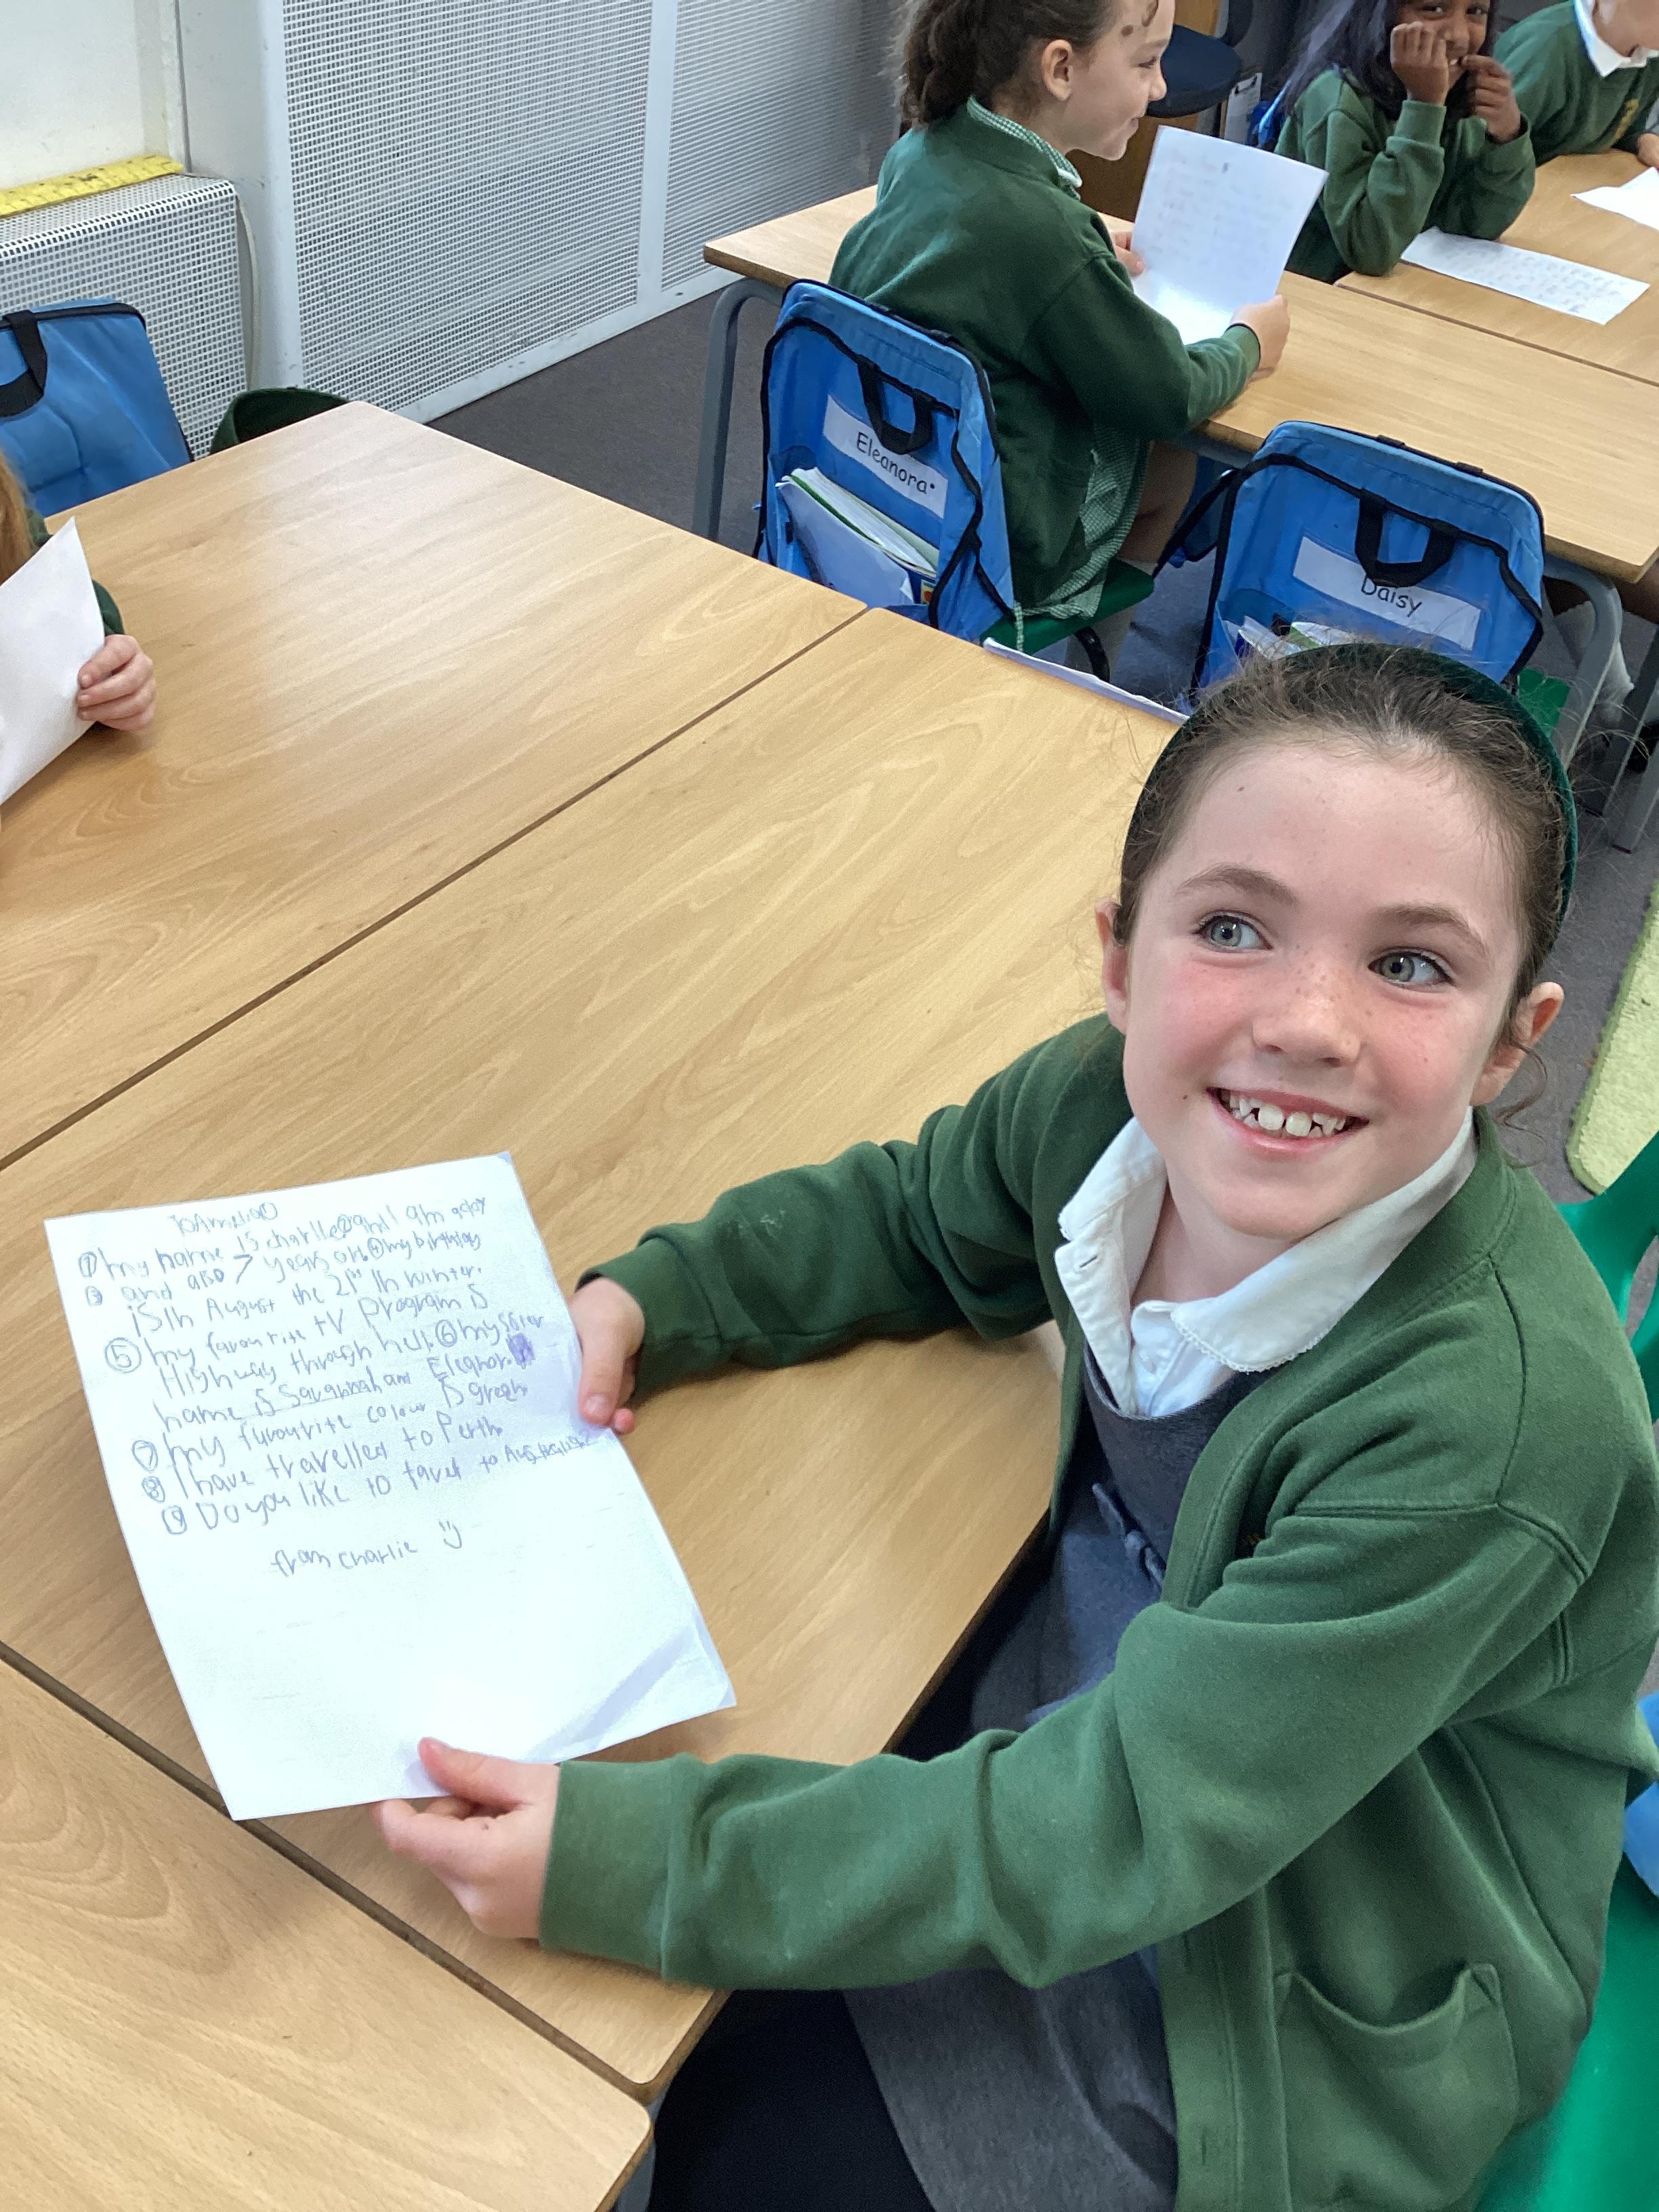 Eleanora
Daisy
To Amelia
① my name is charlie ② and I am a boy
③ and also 7 years old ④ my birthday
is in August the 21st in winter.
⑤ my favourite tV program is
Highway through hell. ⑥ my sister
name is Savannah and Eleanor.
⑦ my favourite colour is green
⑧ I have travelled to Perth
⑨ Do you like to travel to
from Charlie